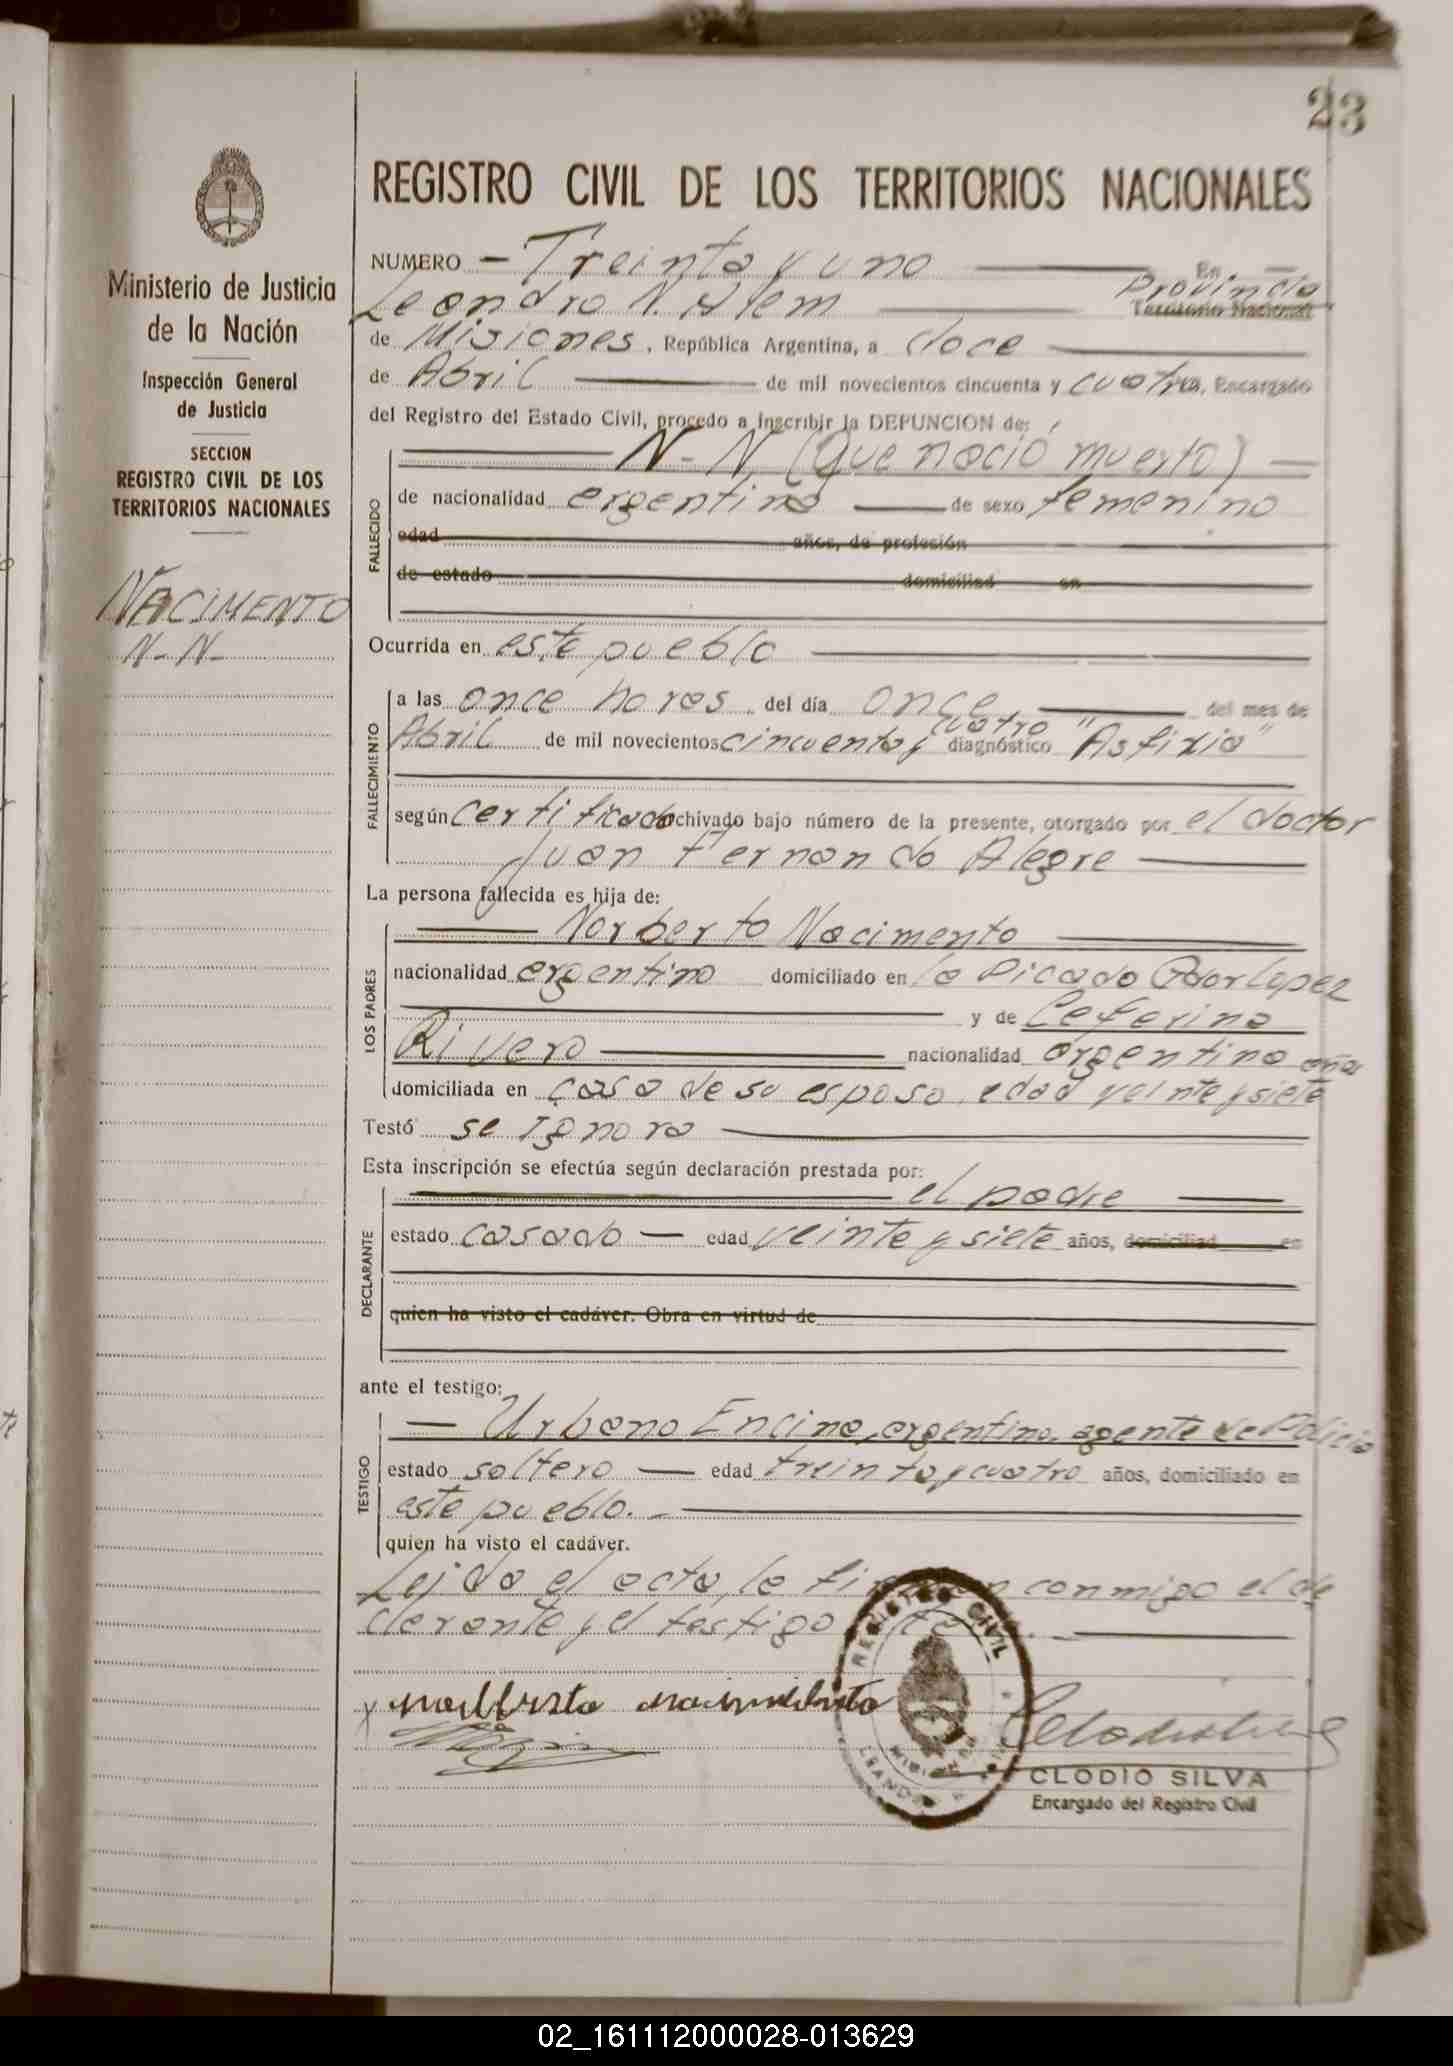 23
REGISTRO CIVIL DE LOS TERRITORIOS NACIONALES
Ministerio de Justicia
de la Nación
Inspección General
de Justicia
SECCION
REGISTRO CIVIL DE LOS
TERRITORIOS NACIONALES
NACIMENTO
N-N-
NUMERO - Treinta y uno En
Leandro N. Alem Provincia Territorio Nacional
de Misiones, República Argentina, a doce
de Abril de mil novecientos cincuenta y cuatro, Encargado
del Registro del Estado Civil, procedo a inscribir la DEFUNCION de:
N-N, (que nació muerto)
FALLECIDO
de nacionalidad argentina de sexo femenino
edad años, de profesión
de estado domiciliad en
Ocurrida en este pueblo
FALLECIMIENTO
a las once horas del día once del mes de
Abril de mil novecientos cincuenta y cuatro diagnóstico "Asfixia"
según certificado archivado bajo número de la presente, otorgado por el doctor
Juan Fernando Alegre
La persona fallecida es hija de:
LOS PADRES
Norberto Nacimento
nacionalidad argentino domiciliado en la Picada
y de Ceferina
Rivero nacionalidad argentina
domiciliada en casa de su esposo, edad veinte y siete
Testó se ignora
Esta inscripción se efectúa según declaración prestada por:
el padre
DECLARANTE
estado casado - edad veinte y siete años, domiciliad en
quien ha visto el cadáver. Obra en virtud de
ante el testigo:
TESTIGO
- Urbano Encina, argentino, agente de Policia
estado soltero - edad treinta y cuatro años, domiciliado en
este pueblo. -
quien ha visto el cadáver.
Leida el acta, la firman conmigo el de
clarante y el testigo
x norberto nacimento
REGISTRO CIVIL
CLODIO SILVA
Encargado del Registro Civil
02_161112000028-013629